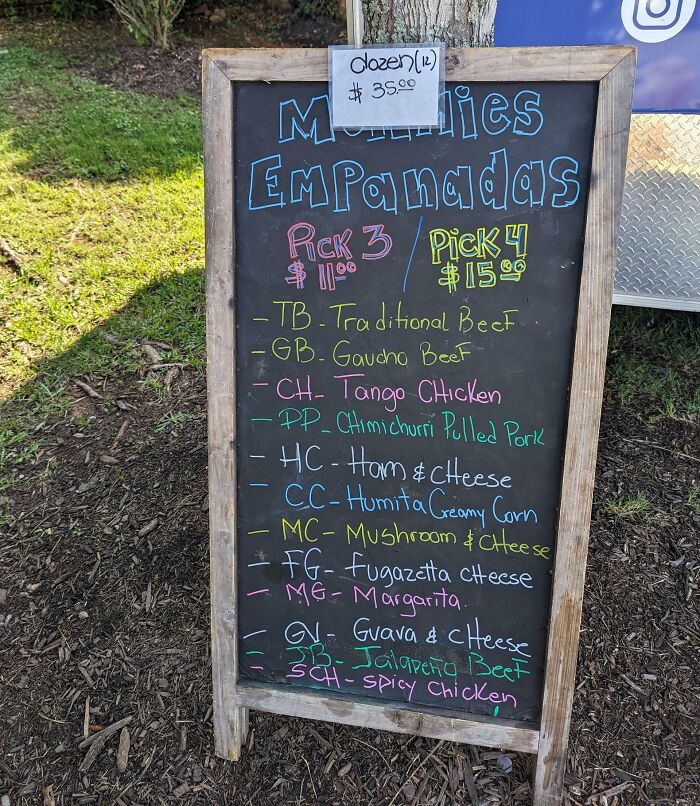 dozen(12)
$ 35.00
Empanadas
Pick 3 / Pick 4
$ 11.00 $ 15.00
- TB - Traditional Beef
- GB - Gaucho Beef
- CH - Tango CHicken
- PP - CHimichurri Pulled Pork
- HC - Ham & cHeese
- CC - Humita Creamy Corn
- MC - Mushroom & CHeese
- FG - Fugazetta cHeese
- MG - Margarita.
- GV - Guava & cHeese
- JB - Jalapeño Beef
- SCH - spicy Chicken